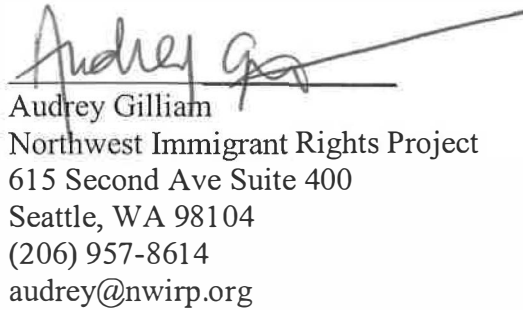 Audrey G
Audrey Gilliam
Northwest Immigrant Rights Project
615 Second Ave Suite 400
Seattle, WA 98104
(206) 957-8614
audrey@nwirp.org